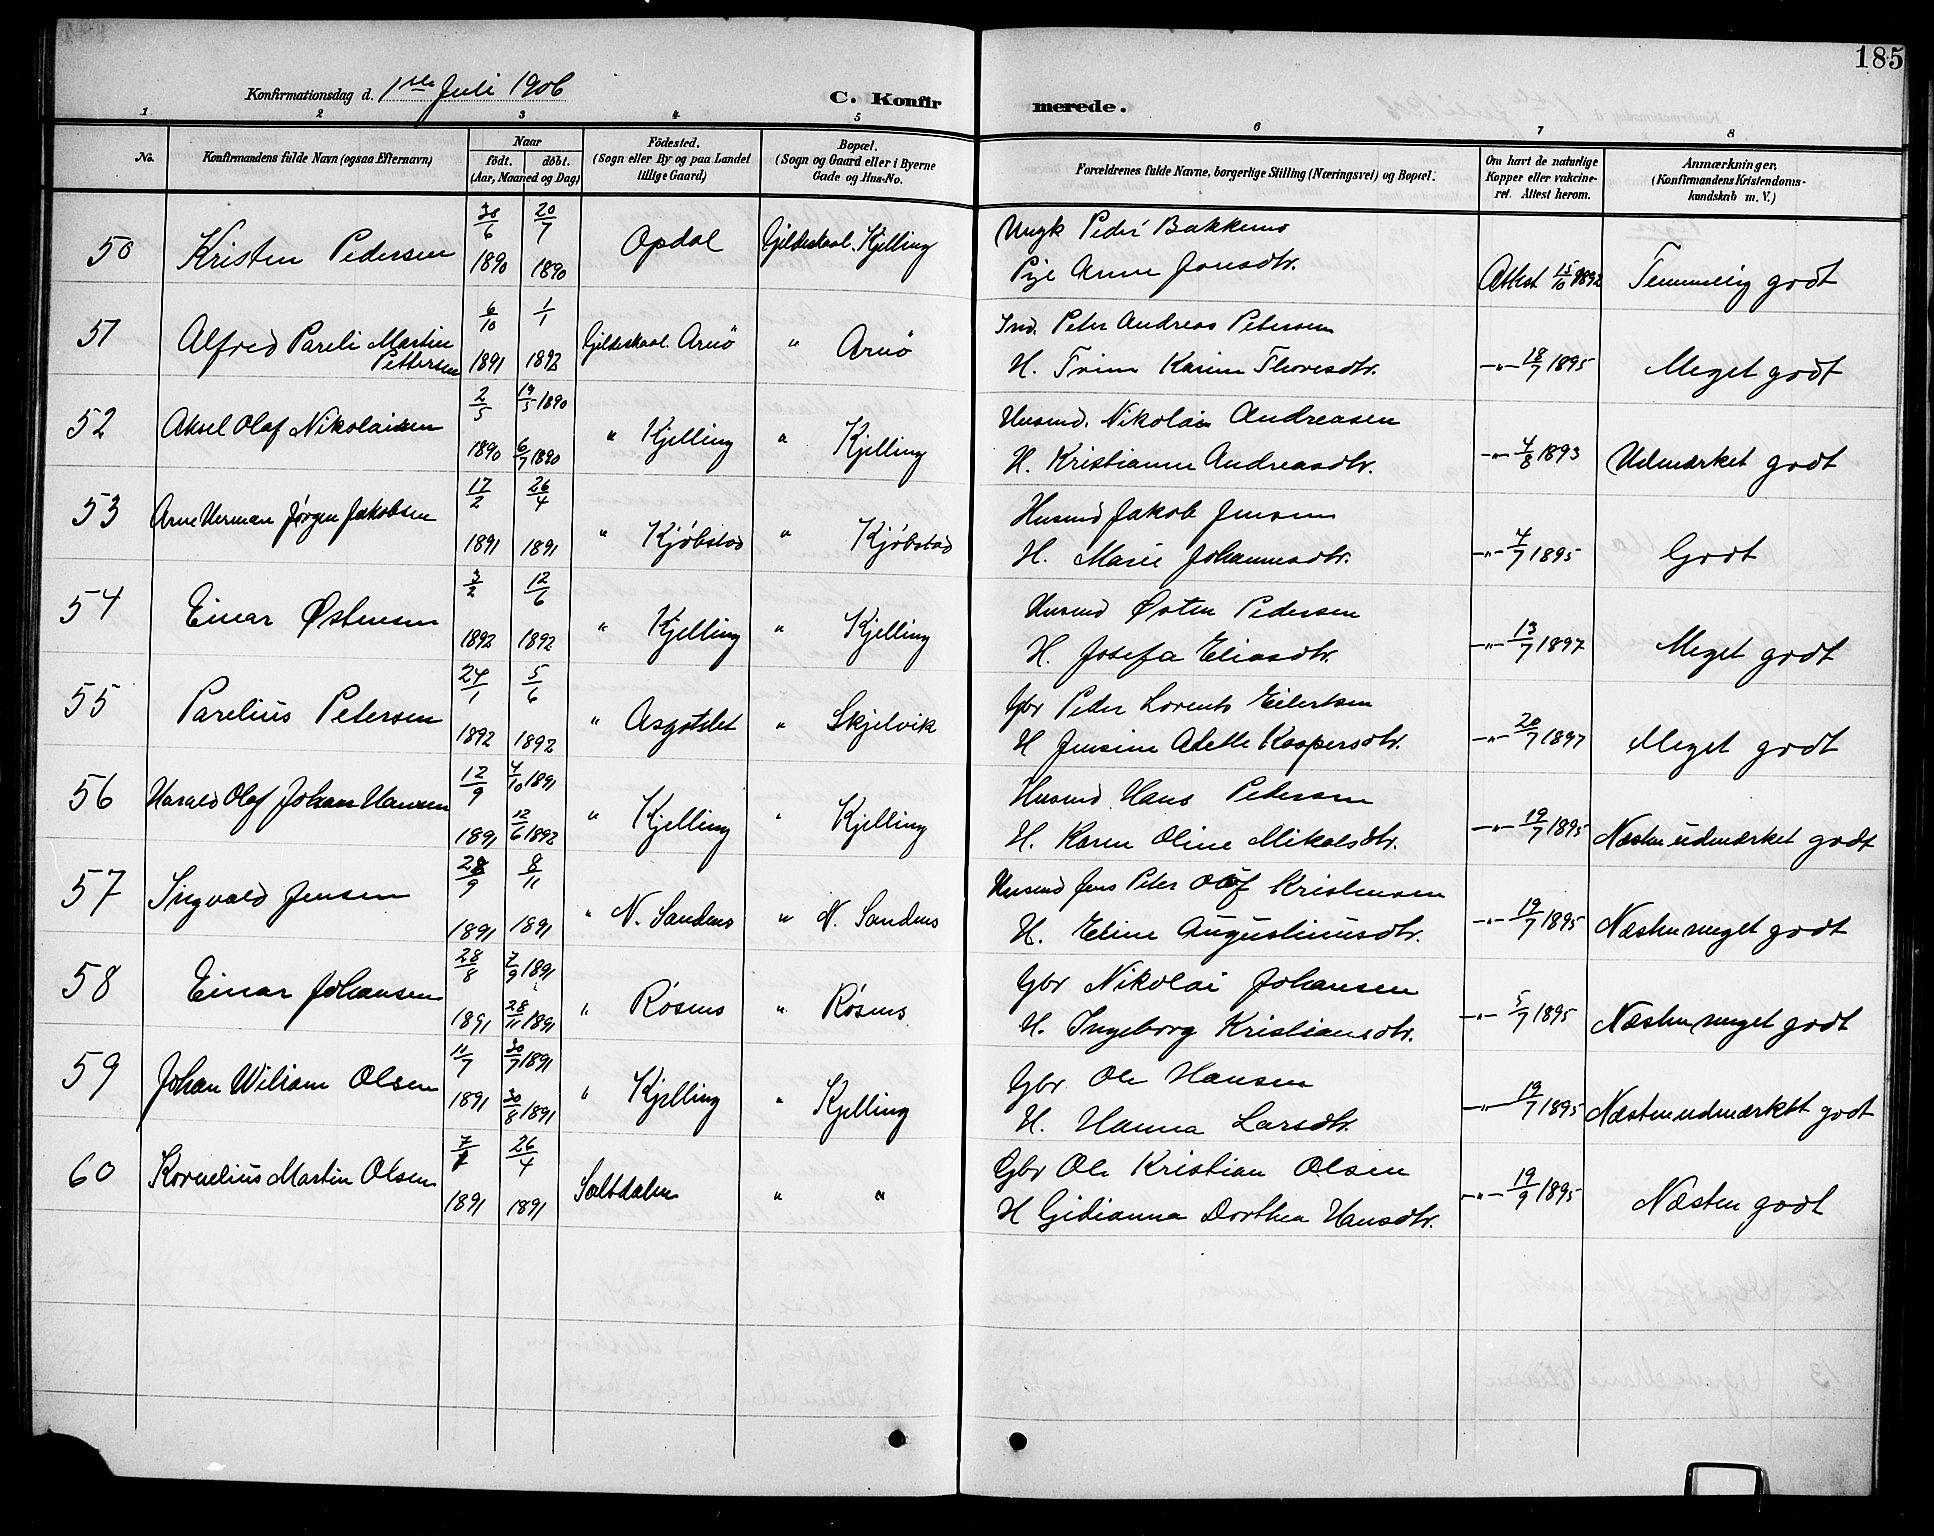 185
Konfirmationsdag d. 1ste Juli 1906
C. Konfirmerede.
1 2 3 4 5 6 7 8
No.
Konfirmandens fulde Navn (ogsaa Efternavn)
Naar
födt. döbt.
(Aar, Maaned og Dag)
Födested.
(Sogn eller By og paa Landet
tillige Gaard)
Bopæl.
(Sogn og Gaard eller i Byerne
Gade og Hus-No.
Forældrenes fulde Navne, borgerlige Stilling (Næringsvei) og Bopæl.
Om havt de naturlige
Kopper eller vakcine-
ret. Attest herom.
Anmærkninger,
(Konfirmandens Kristendoms-
kundskab m. V.)
50 Kristen Pedersen 30/6 1890 20/7 1890 Opdal Gildeskaal. Kjelling
Ungk Peder Bakkemo
Pige Anne Jonsdtr.
Attest 15/10 1892 Temmelig godt
51 Alfred Pareli Martin
Pettersen 6/10 1891 1/1 1892 Gildeskaal. Arnö " Arnö
Ind. Peter Andreas Petersen
H. Trine Karine Thoresdtr.
-"- 18/7 1895 Meget godt
52 Aksel Olaf Nikolaisen 2/5 1890 19/5 1890 6/7 1890 " Kjelling " Kjelling
Husmd. Nikolai Andreasen
H. Kristianne Andreasdtr.
-"- 4/8 1893 Udmærket godt
53 Arne Herman Jörgen Jakobsen 17/2 1891 26/4 1891 " Kjöbstad " Kjöbstad
Husmd Jakob Jensen
H. Marie Johannesdtr.
-"- 4/7 1895 Godt
54 Einar Østensen 3/2 1892 12/6 1892 " Kjelling " Kjelling
Husmd Østen Pedersen
H. Josefa Eliasdtr.
-"- 13/7 1897 Meget godt
55 Parelius Petersen 24/1 1892 5/6 1892 " Asgotslet " Skjelvik
Gbr Peder Lorents Eilertsen
H Jensine Adelle Kaspersdtr.
-"- 20/7 1897 Meget godt
56 Harald Olaf Johan Hansen 12/9 1891 4/10 1891 12/6 1892 " Kjelling " Kjelling
Husmd Hans Pedersen
H. Karen Oline Mikalsdtr.
-"- 19/7 1895 Næsten udmærket godt
57 Sigvald Jensen 28/9 1891 8/11 1891 " N. Sandnes " N. Sandnes
Husmd Jens Peter Olaf Kristensen
H. Eline Augustinusdtr.
-"- 19/7 1895 Næsten meget godt
58 Einar Johansen 28/8 1891 7/9 1891 28/11 1891 " Røsnes " Røsnes
Gbr Nikolai Johansen
H. Ingeborg Kristiansdtr.
-"- 5/7 1895 Næsten meget godt
59 Johan Wiliam Olsen 11/7 1891 30/7 1891 30/8 1891 " Kjelling " Kjelling
Gbr Ole Hansen
H. Hanna Larsdtr.
-"- 19/7 1895 Næsten udmærket godt
60 Kornelius Martin Olsen 7/1 1891 26/4 1891 Saltdalen " "
Gbr Ole Kristian Olsen
H Gidianna Dorthea Hansdtr.
-"- 19/9 1895 Næsten godt